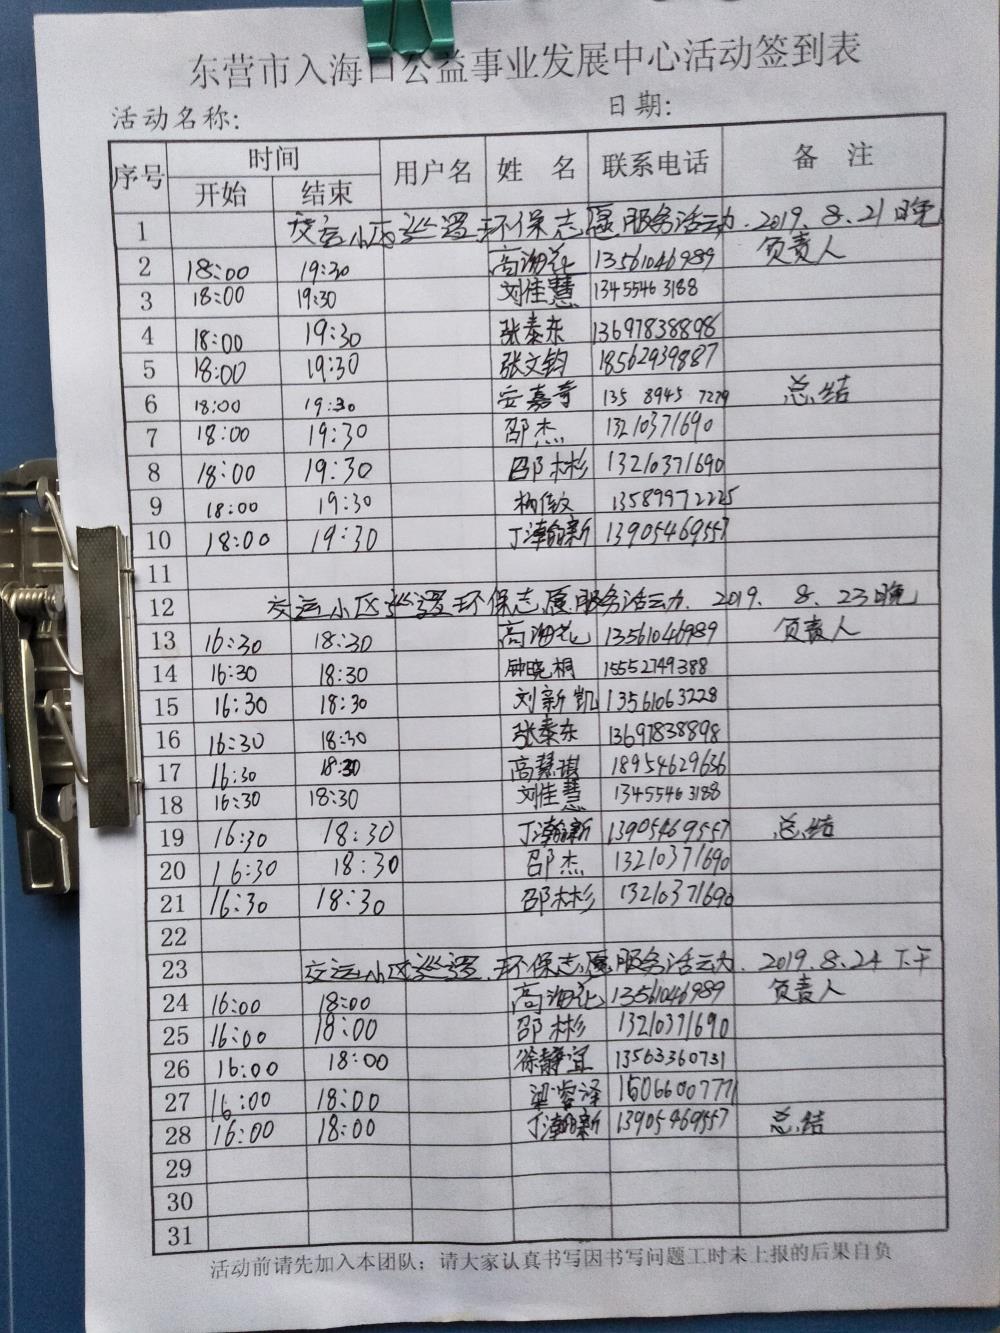 东营市入海口公益事业发展中心活动签到表
活动名称: 日期:
序号 时间 用户名 姓 名 联系电话 备 注
开始 结束
1 交运小区巡逻环保志愿服务活动. 2019. 8. 21日晚
2 18:00 19:30 高海花 13561046989 负责人
3 18:00 19:30 刘佳慧 13455463188
4 18:00 19:30 张泰东 13697838898
5 18:00 19:30 张文钧 18562939887
6 18:00 19:30 安嘉奇 135 8945 7279 总结
7 18:00 19:30 邵杰 13210371690
8 18:00 19:30 邵林彬 13210371690
9 18:00 19:30 13589972225
10 18:00 19:30 丁瀚新 13905469557
11
12 交运小区巡逻环保志愿服务活动. 2019. 8. 23日晚
13 16:30 18:30 高海花 13561046989 负责人
14 16:30 18:30 钟晓桐 15552749388
15 16:30 18:30 刘新凯 13561063228
16 16:30 18:30 张泰东 13697838898
17 16:30 18:30 高慧琪 18954629636
18 16:30 18:30 刘佳慧 13455463188
19 16:30 18:30 丁瀚新 13905469557 总结
20 16:30 18:30 邵杰 13210371690
21 16:30 18:30 邵林彬 13210371690
22
23 交运小区巡逻.环保志愿服务活动. 2019.8.24下午
24 16:00 18:00 高海花 13561046989 负责人
25 16:00 18:00 邵彬 13210371690
26 16:00 18:00 徐静宜 13563360731
27 16:00 18:00 梁睿泽 15066007771
28 16:00 18:00 丁瀚新 13905469557 总结
29
30
31
活动前请先加入本团队；请大家认真书写因书写问题工时未上报的后果自负